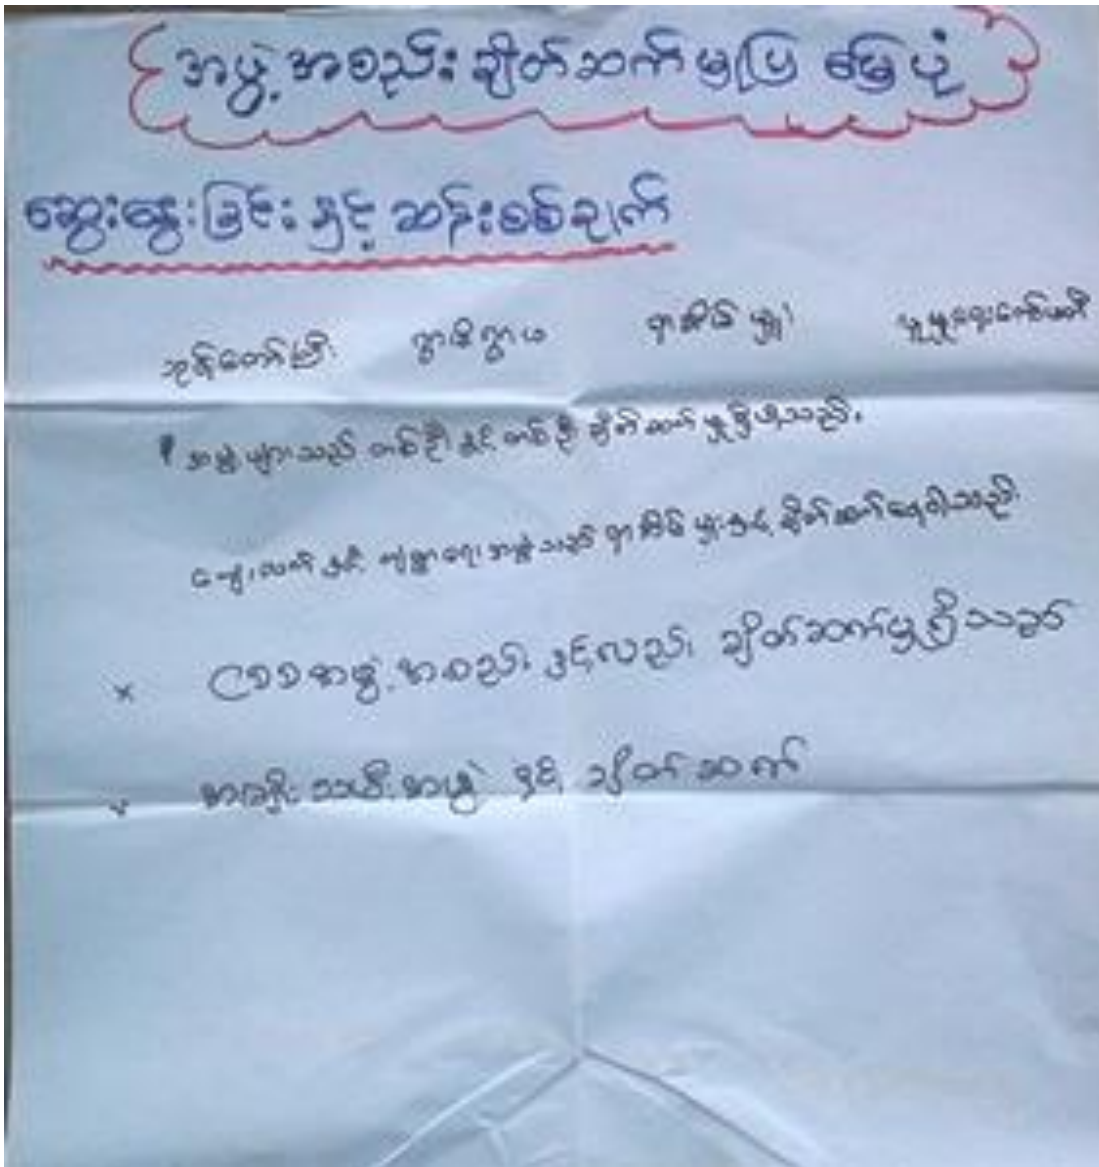 အဖွဲ့အစည်းချိတ်ဆက်မှုပြ မြေပုံ
ဆွေးနွေးခြင်းနှင့် ဆန်းစစ်ချက်
ဘုန်းတော်ကြီး ရွာမိရွာဖ ရာအိမ်မှူး လူမှုရေးကော်မတီ
* အဖွဲ့များသည် တစ်ဦးနှင့် တစ်ဦး ချိတ်ဆက်မှုရှိပါသည်။
ကျေးလက်နှင့် ကျန်းမာရေးအဖွဲ့သည် ရာအိမ်မှူးနှင့် ချိတ်ဆက်နေပါသည်။
× အဖွဲ့အစည်းနှင့်လည်း ချိတ်ဆက်မှုရှိသည်
အမျိုးသမီးအဖွဲ့နှင့် ချိတ်ဆက်